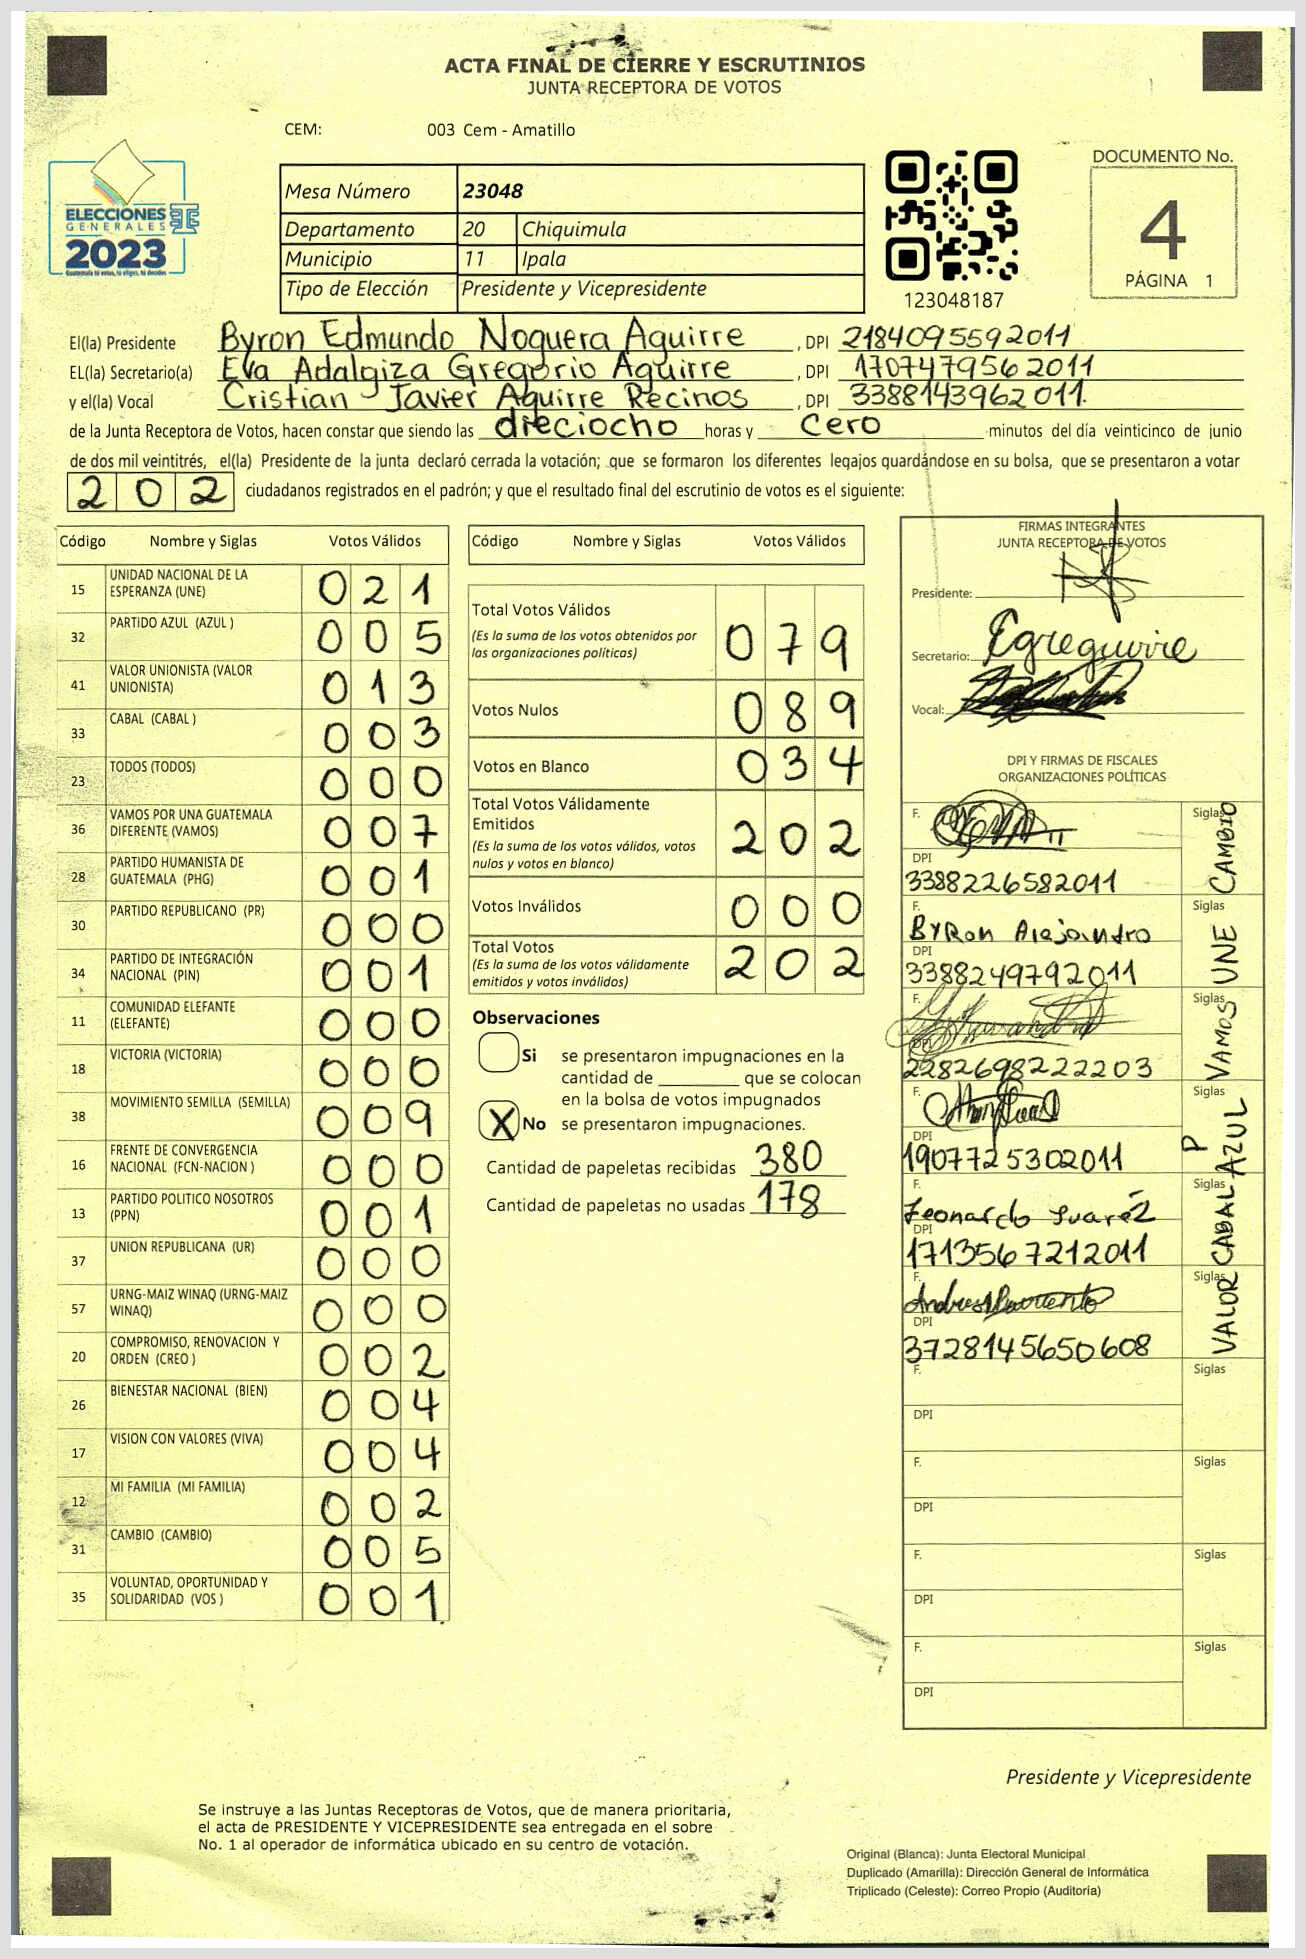 ACTA FINAL DE CIERRE Y ESCRUTINIOS
JUNTA RECEPTORA DE VOTOS
CEM: 003 Cem - Amatillo
ELECCIONES
GENERALES
2023
Guatemala tú votas, tú eliges, tú decides
Mesa Número 23048
Departamento 20 Chiquimula
Municipio 11 Ipala
Tipo de Elección Presidente y Vicepresidente
123048187
DOCUMENTO No.
4
PÁGINA 1
El(la) Presidente Byron Edmundo Noguera Aguirre , DPI 2184095592011
EL(la) Secretario(a) Eva Adalgiza Gregorio Aguirre , DPI 1707479562011
y el(la) Vocal Cristian Javier Aguirre Recinos , DPI 3388143962011.
de la Junta Receptora de Votos, hacen constar que siendo las dieciocho horas y cero minutos del día veinticinco de junio
de dos mil veintitrés, el(la) Presidente de la junta declaró cerrada la votación; que se formaron los diferentes legajos guardándose en su bolsa, que se presentaron a votar
202 ciudadanos registrados en el padrón; y que el resultado final del escrutinio de votos es el siguiente:
Código Nombre y Siglas Votos Válidos
15 UNIDAD NACIONAL DE LA ESPERANZA (UNE) 021
32 PARTIDO AZUL (AZUL ) 005
41 VALOR UNIONISTA (VALOR UNIONISTA) 013
33 CABAL (CABAL ) 003
23 TODOS (TODOS) 000
36 VAMOS POR UNA GUATEMALA DIFERENTE (VAMOS) 007
28 PARTIDO HUMANISTA DE GUATEMALA (PHG) 001
30 PARTIDO REPUBLICANO (PR) 000
34 PARTIDO DE INTEGRACIÓN NACIONAL (PIN) 001
11 COMUNIDAD ELEFANTE (ELEFANTE) 000
18 VICTORIA (VICTORIA) 000
38 MOVIMIENTO SEMILLA (SEMILLA) 009
16 FRENTE DE CONVERGENCIA NACIONAL (FCN-NACION ) 000
13 PARTIDO POLITICO NOSOTROS (PPN) 001
37 UNION REPUBLICANA (UR) 000
57 URNG-MAIZ WINAQ (URNG-MAIZ WINAQ) 000
20 COMPROMISO, RENOVACION Y ORDEN (CREO ) 002
26 BIENESTAR NACIONAL (BIEN) 004
17 VISION CON VALORES (VIVA) 004
12 MI FAMILIA (MI FAMILIA) 002
31 CAMBIO (CAMBIO) 005
35 VOLUNTAD, OPORTUNIDAD Y SOLIDARIDAD (VOS ) 001
Código Nombre y Siglas Votos Válidos
Total Votos Válidos 079
(Es la suma de los votos obtenidos por las organizaciones políticas)
Votos Nulos 089
Votos en Blanco 034
Total Votos Válidamente Emitidos 202
(Es la suma de los votos válidos, votos nulos y votos en blanco)
Votos Inválidos 000
Total Votos 202
(Es la suma de los votos válidamente emitidos y votos inválidos)
Observaciones
Si se presentaron impugnaciones en la
cantidad de ________ que se colocan
en la bolsa de votos impugnados
X No se presentaron impugnaciones.
Cantidad de papeletas recibidas 380
Cantidad de papeletas no usadas 178
FIRMAS INTEGRANTES
JUNTA RECEPTORA DE VOTOS
Presidente:
Secretario: Egreguirre
Vocal:
DPI Y FIRMAS DE FISCALES
ORGANIZACIONES POLÍTICAS
F. Siglas CAMBIO
DPI
3388226582011
F. Byron Alejandro Siglas UNE
DPI
3388249792011
F. Siglas VAMOS
DPI
2282698222203
F. Siglas AZUL P
DPI
1907725302011
F. Leonardo Suaréz Siglas CABAL
DPI
1713567212011
F. Siglas VALOR
DPI
3728145650608
F. Siglas
DPI
F. Siglas
DPI
F. Siglas
DPI
F. Siglas
DPI
Presidente y Vicepresidente
Se instruye a las Juntas Receptoras de Votos, que de manera prioritaria,
el acta de PRESIDENTE Y VICEPRESIDENTE sea entregada en el sobre
No. 1 al operador de informática ubicado en su centro de votación.
Original (Blanca): Junta Electoral Municipal
Duplicado (Amarilla): Dirección General de Informática
Triplicado (Celeste): Correo Propio (Auditoría)